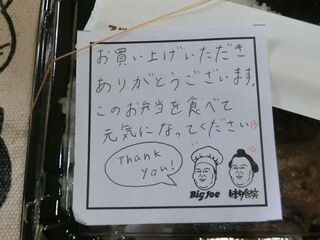 お買い上げいただき
ありがとうございます。
このお弁当を食べて
元気になってください
Thank
you!
Big Joe